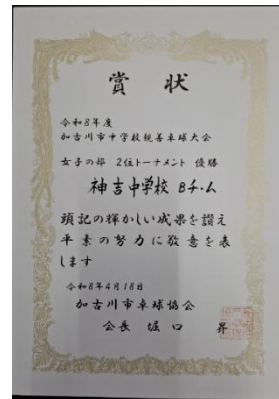 賞状
令和8年度
加古川市中学校親善卓球大会
女子の部 2位トーナメント 優勝
神吉中学校 Bチーム
頭記の輝かしい成果を讃え
平素の努力に敬意を表
します
令和8年4月18日
加古川市卓球協会
会長 堀口 昇